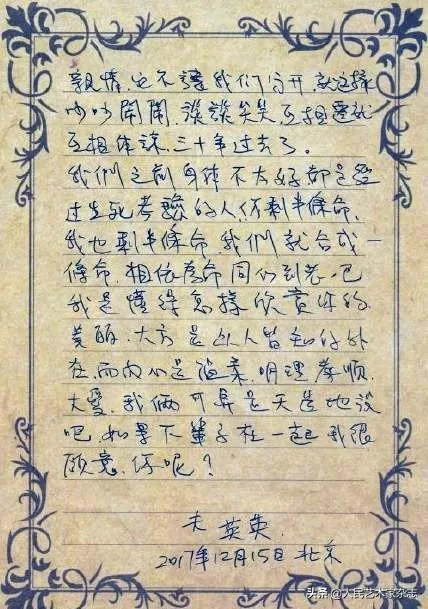 親情。也不讓我们分开,就这樣
吵吵鬧鬧,談談笑笑,互相遷就
互相体諒,三十年过去了。
我們之前身体不太好都是受
过生死考驗的人,你剩半條命,
我也剩半條命,我們就合成一
條命,相依為命,同你到老吧
我是懂得怎樣欣賞你的
美丽、大方是人人皆知的外
在,而内心是温柔、明理、孝順、
大愛,我倆可算是天造地設
吧,如果下輩子在一起我很
願意,你呢?
夫 英英
2017年12月15日 北京
头条 @人民艺术家杂志